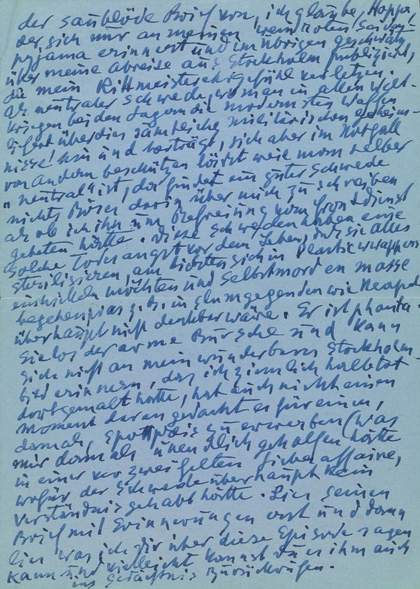 der saublöde Brief von, ich glaube, Hoppe
der sich nur an meinen weinroten Seiden-
pyjama erinnert und im übrigen Geschichten
über meine Abreise aus Stockholm publiziert,
die mein Rittmeisterehrgefühl verletzen.
als neutraler Schwede, wo man in allen Welt-
kriegen beiden Lagern die modernsten Waffen
liefert überdies sämtliche militärischen Geheim-
nisse! hin und herträgt, sich aber im Notfall
von Andern beschützen lässt weil man selber
"neutral" ist, da findet ein guter Schwede
nichts Böses darin über mich zu schreiben
als ob ich ihn um Befreiung vom Frontdienst
gebeten hätte. Diese Schweden haben eine
solche Todesangst vor dem Leben, dass sie alles
sterilisieren, am liebsten sich in Plastic wrappers
einwickeln möchten und Selbstmord en masse
begehen, was z.B. in Slumgegenden wie Neapel
überhaupt nicht denkbar wäre. Er ist phanta-
sielos der arme Bursche und kann
sich nicht an mein wunderbares Stockholm
Bild erinnern, das ich ziemlich halbtot
dort gemalt hatte, hat auch nicht einen
Moment daran gedacht es für einen,
damals, Spottpreis zu erwerben (was
mir damals unendlich geholfen hätte
in einer verzweifelten Liebesaffaire,
wofür der Schwede überhaupt kein
Verständnis gehabt hätte. Lies seinen
Brief mit Erinnerungen erst und dann
lies was ich dir über diese Episode sagen
kann und vielleicht kannst du es ihm auch
ins Gedächtnis zurückrufen.